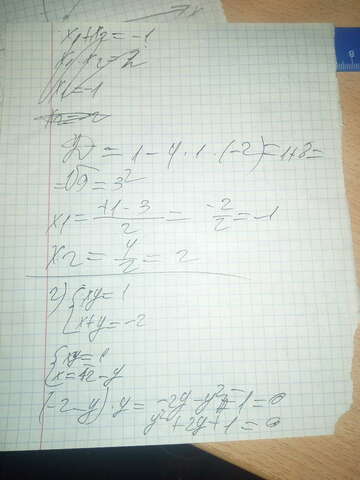 x₁+x₂=-1
x₂=-1
D=1-4·1·(-2)=1+8=
=√9=3²
x1=+1-3/2=-2/2=-1
x2=4/2=2
2){xy=1
{x+y=-2
{xy=1
{x=-2-y
(-2-y)·y=-2y-y²-1=0
y²+2y+1=0